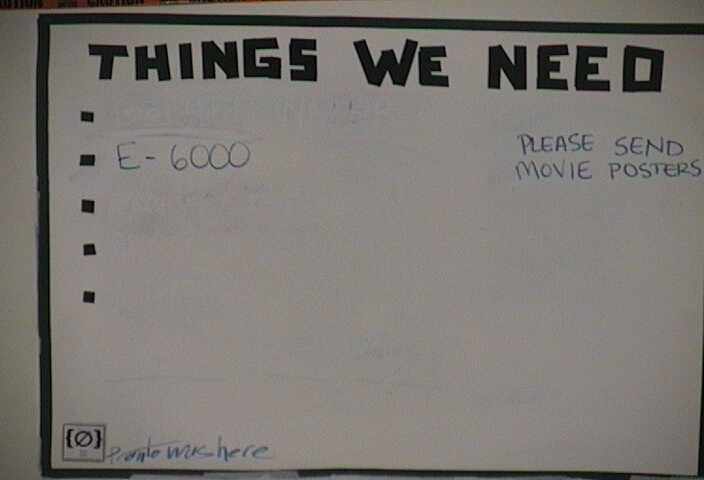 CAUTION
THINGS WE NEED
E-6000
PLEASE SEND
MOVIE POSTERS
{Ø}
Pronto was here